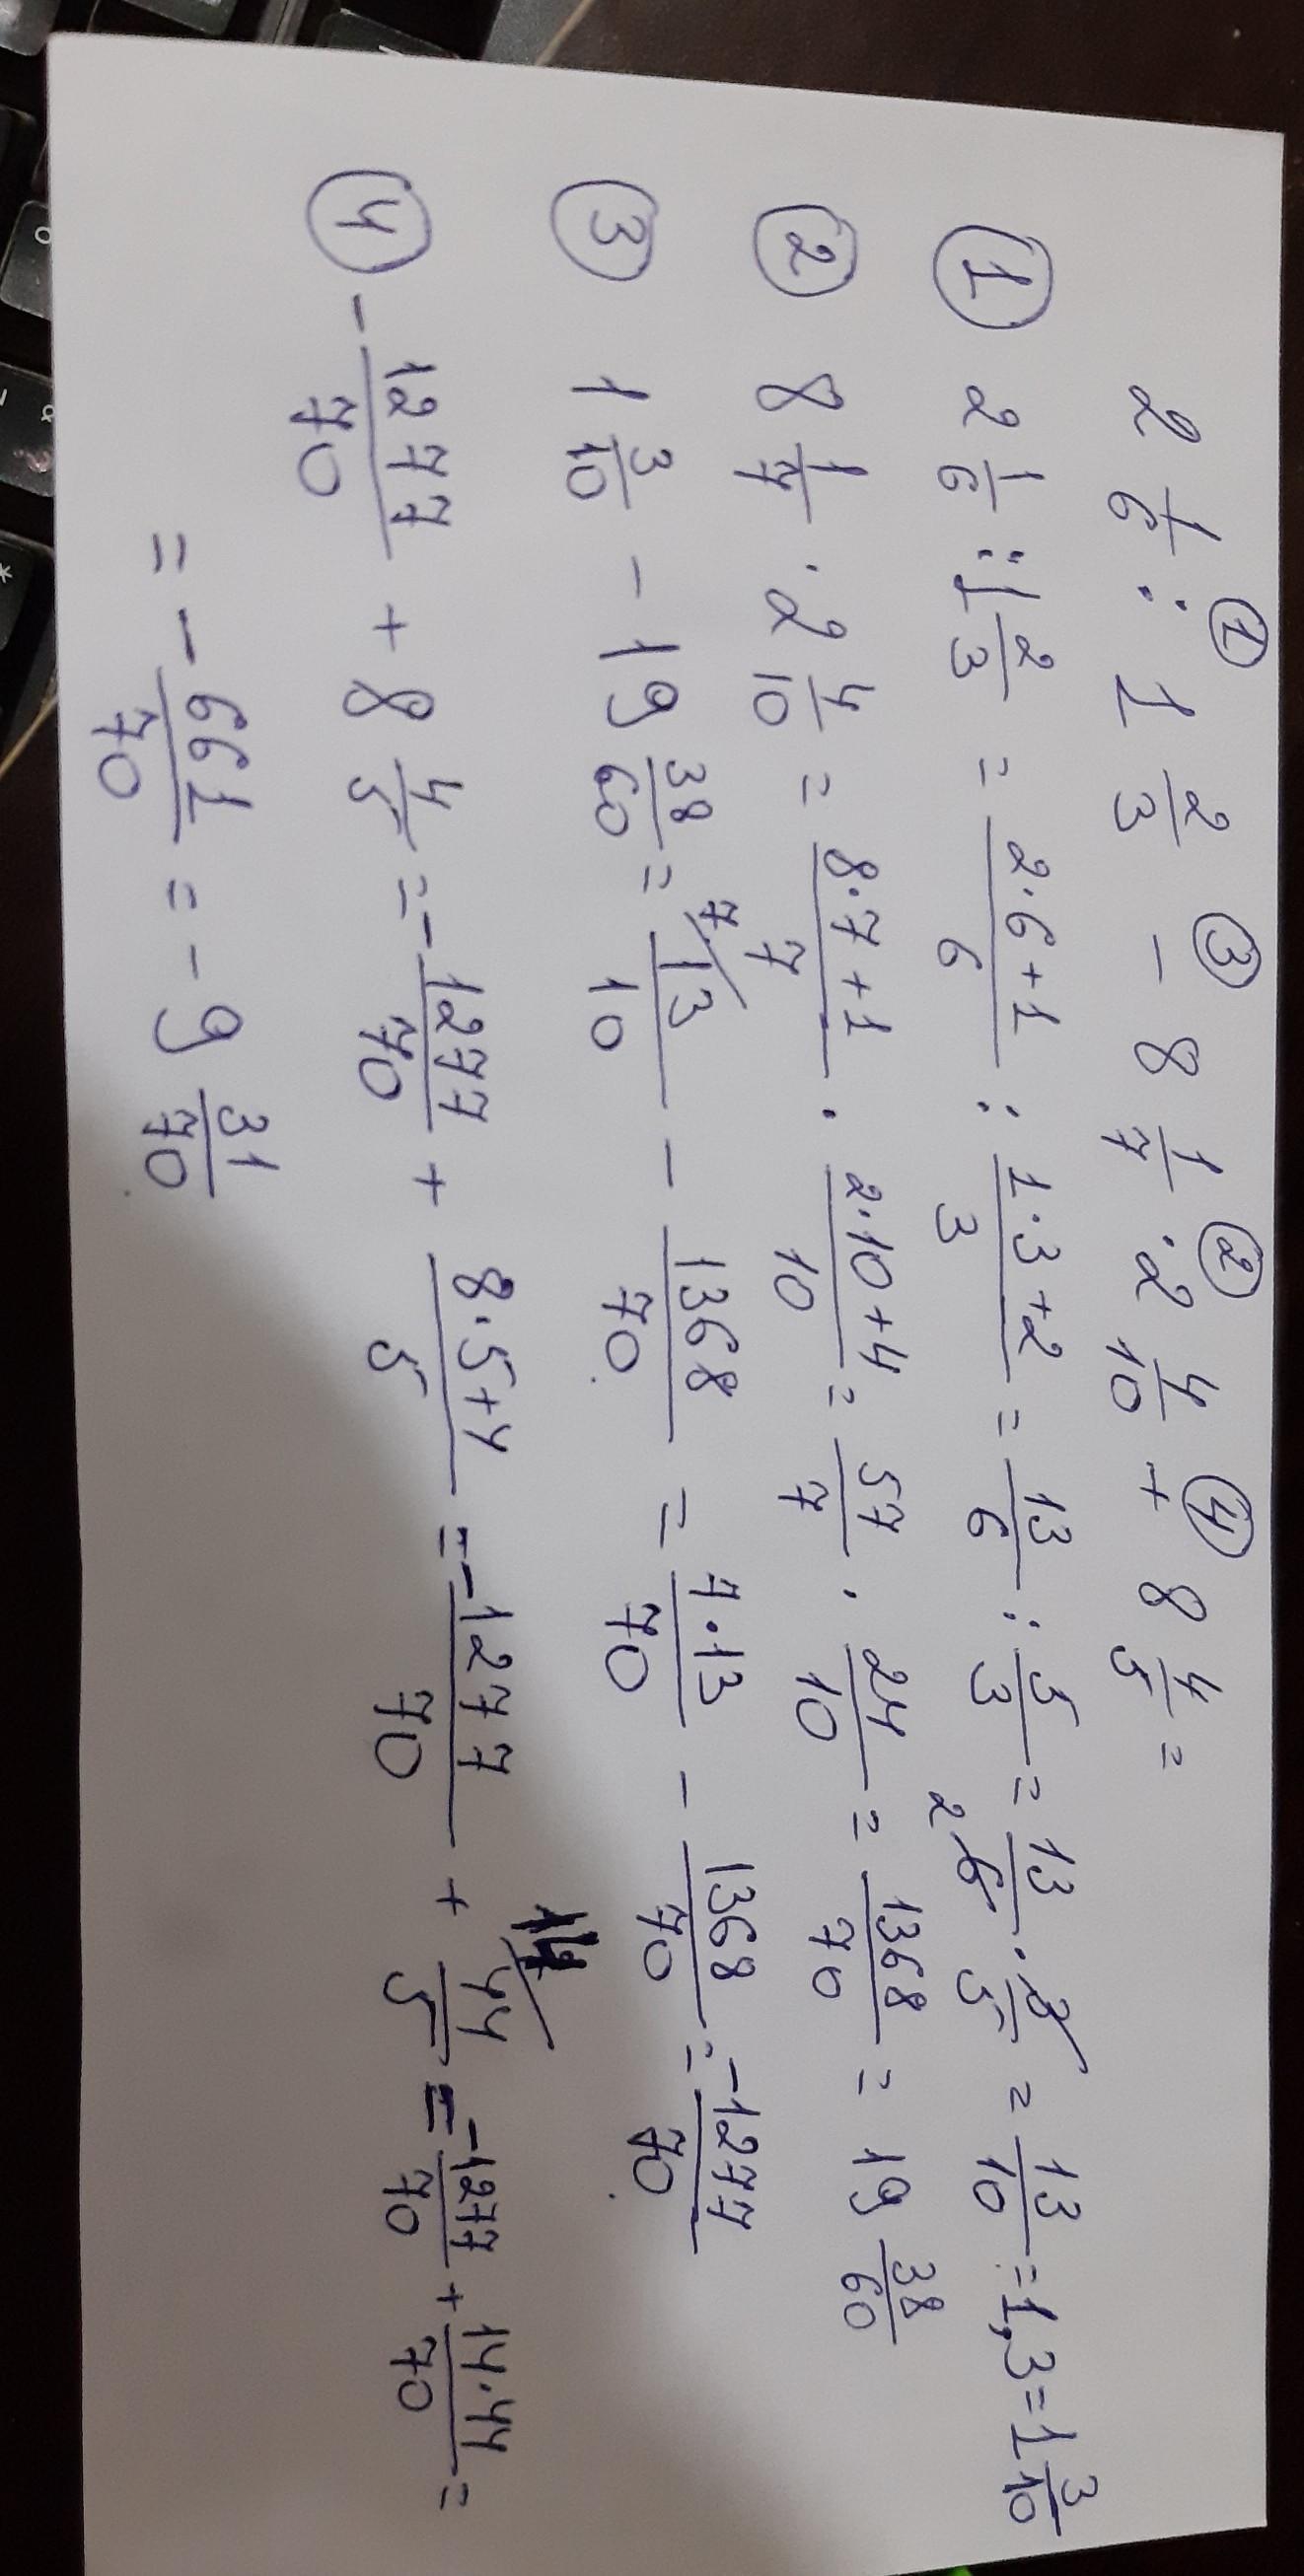 2 1/6 : 1 2/3 - 8 1/7 · 2 4/10 + 8 4/5 =
① ③ ② ④
① 2 1/6 : 1 2/3 = (2·6+1)/6 : (1·3+2)/3 = 13/6 : 5/3 = 13/6 · 3/5 = 13/10 = 1,3 = 1 3/10
2
② 8 1/7 · 2 4/10 = (8·7+1)/7 · (2·10+4)/10 = 57/7 · 24/10 = 1368/70 = 19 38/60
③ 1 3/10 - 19 38/60 = 7/ 13/10 - 1368/70 = 7·13/70 - 1368/70 = -1277/70
④ - 1277/70 + 8 4/5 = - 1277/70 + (8·5+4)/5 = - 1277/70 + 14/ 44/5 = -1277/70 + 14·44/70 =
= - 661/70 = - 9 31/70